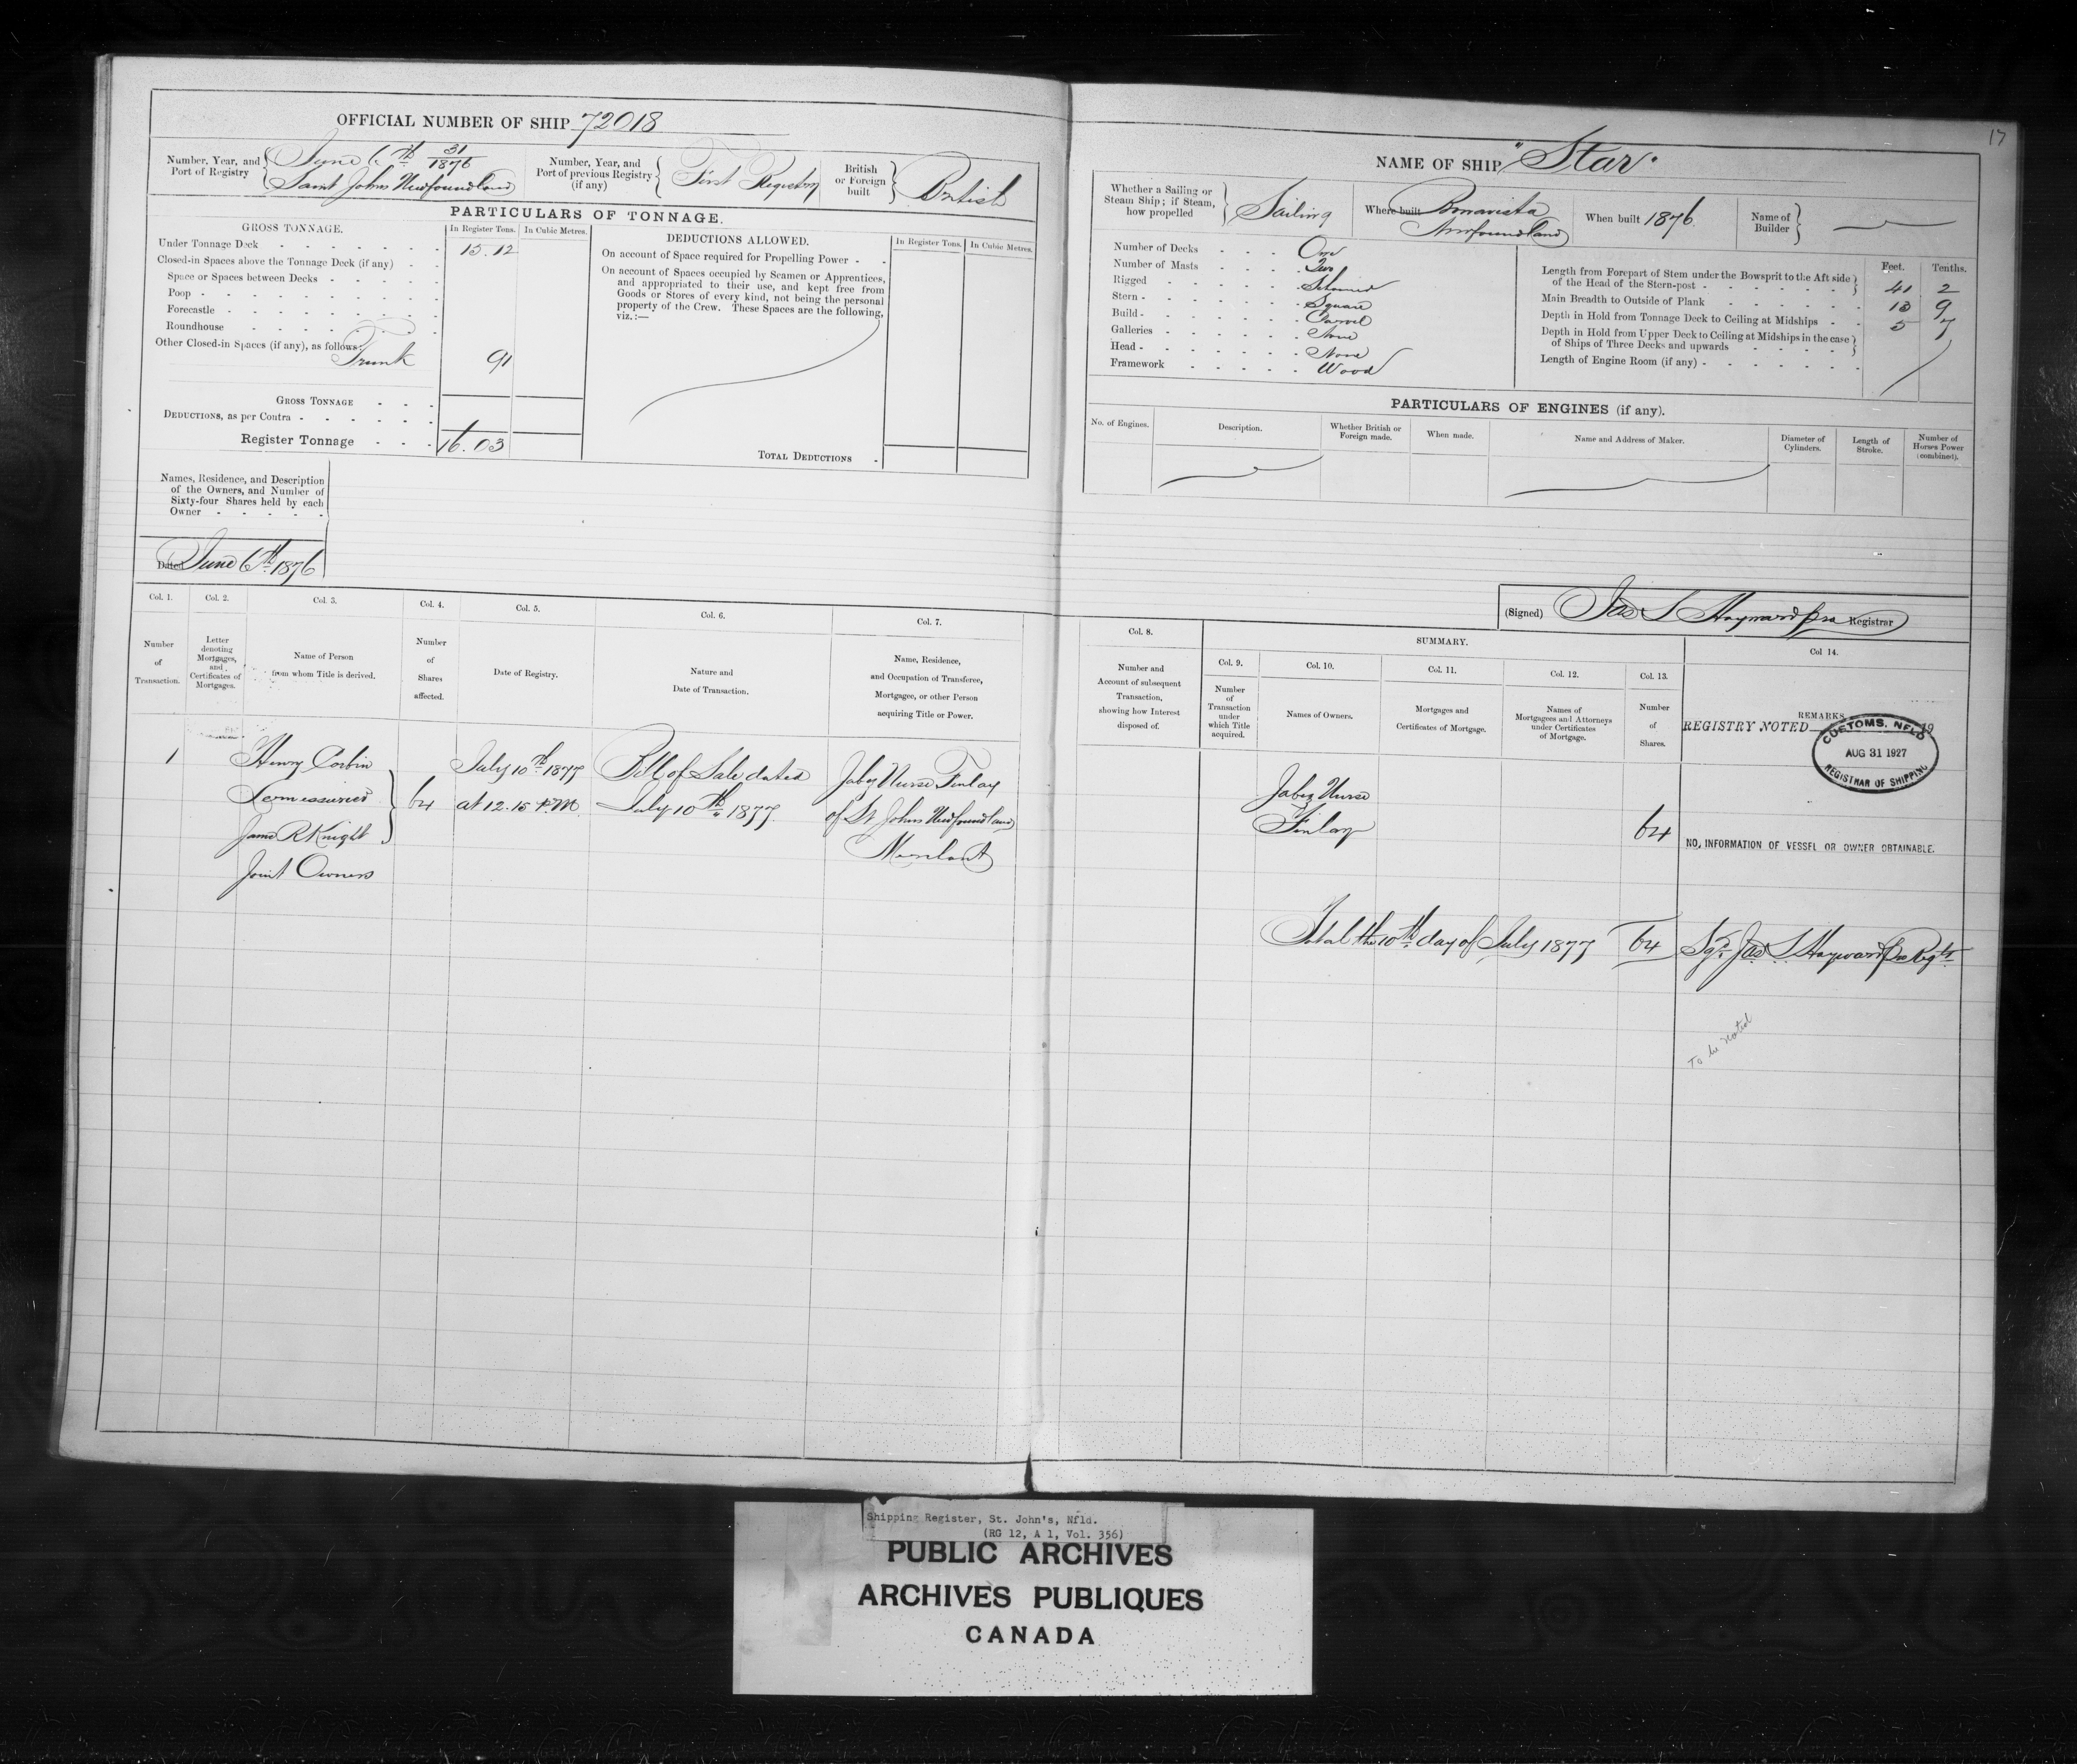 17
OFFICIAL NUMBER OF SHIP 72018
Number, Year, and Port of Registry
June 6th 31/1876
Saint Johns Newfoundland
Number, Year, and Port of previous Registry (if any)
First Registry
British or Foreign built
British
PARTICULARS OF TONNAGE.
GROSS TONNAGE.
In Register Tons.
In Cubic Metres.
Under Tonnage Deck 15.12
Closed-in Spaces above the Tonnage Deck (if any)
Space or Spaces between Decks
Poop
Forecastle
Roundhouse
Other Closed-in Spaces (if any), as follows:
Trunk 91
GROSS TONNAGE
DEDUCTIONS, as per Contra
Register Tonnage 16.03
DEDUCTIONS ALLOWED.
In Register Tons.
In Cubic Metres.
On account of Space required for Propelling Power
On account of Spaces occupied by Seamen or Apprentices,
and appropriated to their use, and kept free from
Goods or Stores of every kind, not being the personal
property of the Crew. These Spaces are the following,
viz.:—
TOTAL DEDUCTIONS
Names, Residence, and Description
of the Owners, and Number of
Sixty-four Shares held by each
Owner
Dated June 6th 1876
NAME OF SHIP "Star"
Whether a Sailing or
Steam Ship; if Steam,
how propelled
Sailing
Where built Bonavista
Newfoundland
When built 1876
Name of
Builder
Number of Decks One
Number of Masts Two
Rigged
Stern Square
Build Carvel
Galleries None
Head None
Framework Wood
Feet. Tenths.
Length from Forepart of Stem under the Bowsprit to the Aft side
of the Head of the Stern-post 41 2
Main Breadth to Outside of Plank 13 9
Depth in Hold from Tonnage Deck to Ceiling at Midships 5 7
Depth in Hold from Upper Deck to Ceiling at Midships in the case
of Ships of Three Decks and upwards
Length of Engine Room (if any)
PARTICULARS OF ENGINES (if any).
No. of Engines.
Description.
Whether British or
Foreign made.
When made.
Name and Address of Maker.
Diameter of
Cylinders.
Length of
Stroke.
Number of
Horses Power
(combined).
(Signed) Jas S Hayward Registrar
Col. 1.
Number
of
Transaction.
Col. 2.
Letter
denoting
Mortgages,
and
Certificates of
Mortgages.
Col. 3.
Name of Person
from whom Title is derived.
Col. 4.
Number
of
Shares
affected.
Col. 5.
Date of Registry.
Col. 6.
Nature and
Date of Transaction.
Col. 7.
Name, Residence,
and Occupation of Transferee,
Mortgagee, or other Person
acquiring Title or Power.
1
Henry Corbin
Lemessurier
James R Knight
Joint Owners
64
July 10th 1877
at 12.15 P.M.
Bill of Sale dated
July 10th 1877.
Jabez Nurse Finlay
of St Johns Newfoundland
Merchant
Col. 8.
Number and
Account of subsequent
Transaction,
showing how Interest
disposed of.
SUMMARY.
Col. 9.
Number
of
Transaction
under
which Title
acquired.
Col. 10.
Names of Owners.
Col. 11.
Mortgages and
Certificates of Mortgage.
Col. 12.
Names of
Mortgagees and Attorneys
under Certificates
of Mortgage.
Col. 13.
Number
of
Shares.
Col 14.
REMARKS
REGISTRY NOTED 19
CUSTOMS, NFLD
AUG 31 1927
REGISTRAR OF SHIPPING
Jabez Nurse
Finlay
64
NO. INFORMATION OF VESSEL OR OWNER OBTAINABLE.
Total the 10th day of July 1877 64
Sgd Jas S Hayward
To be noted
Shipping Register, St. John's, Nfld.
(RG 12, A 1, Vol. 356)
PUBLIC ARCHIVES
ARCHIVES PUBLIQUES
CANADA